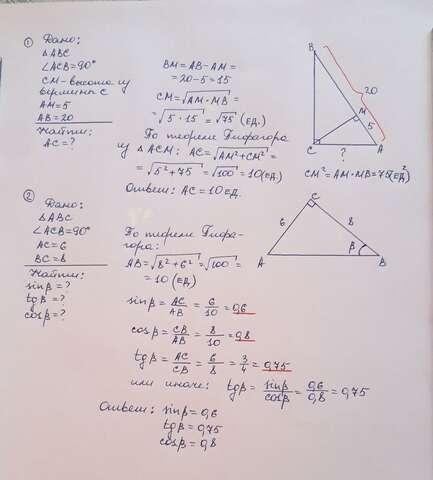 ① Дано:
△ABC
∠ACB=90°
CM-высота из
вершины C
AM=5
AB=20
Найти:
AC=?
BM=AB-AM=
=20-5=15
CM=√AM·MB=
=√5·15=√75 (ед.)
По теореме Пифагора
из △ACM: AC=√AM²+CM²=
=√5²+75=√100=10(ед)
Ответ: AC=10 ед.
B
20
M
5
C
?
A
CM²=AM·MB=75(ед²)
② Дано:
△ABC
∠ACB=90°
AC=6
BC=8
Найти:
sinβ=?
tgβ=?
cosβ=?
По теореме Пифа-
гора:
AB=√8²+6²=√100=
=10 (ед)
C
6
8
β
A
B
sinβ=AC/AB=6/10=0,6
cosβ=CB/AB=8/10=0,8
tgβ=AC/CB=6/8=3/4=0,75
или иначе: tgβ=sinβ/cosβ=0,6/0,8=0,75
Ответ: sinβ=0,6
tgβ=0,75
cosβ=0,8